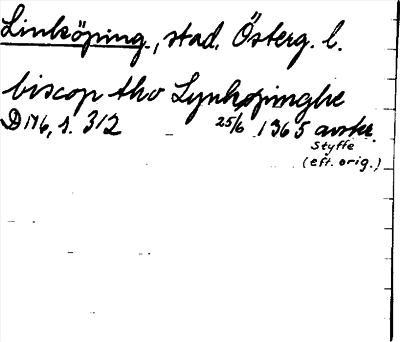 Linköping, stad. Österg. l.
biscop tho Lynkøpinghe
D 176, s. 312 25/6 1365 avskr.
Styffe
(eft. orig.)